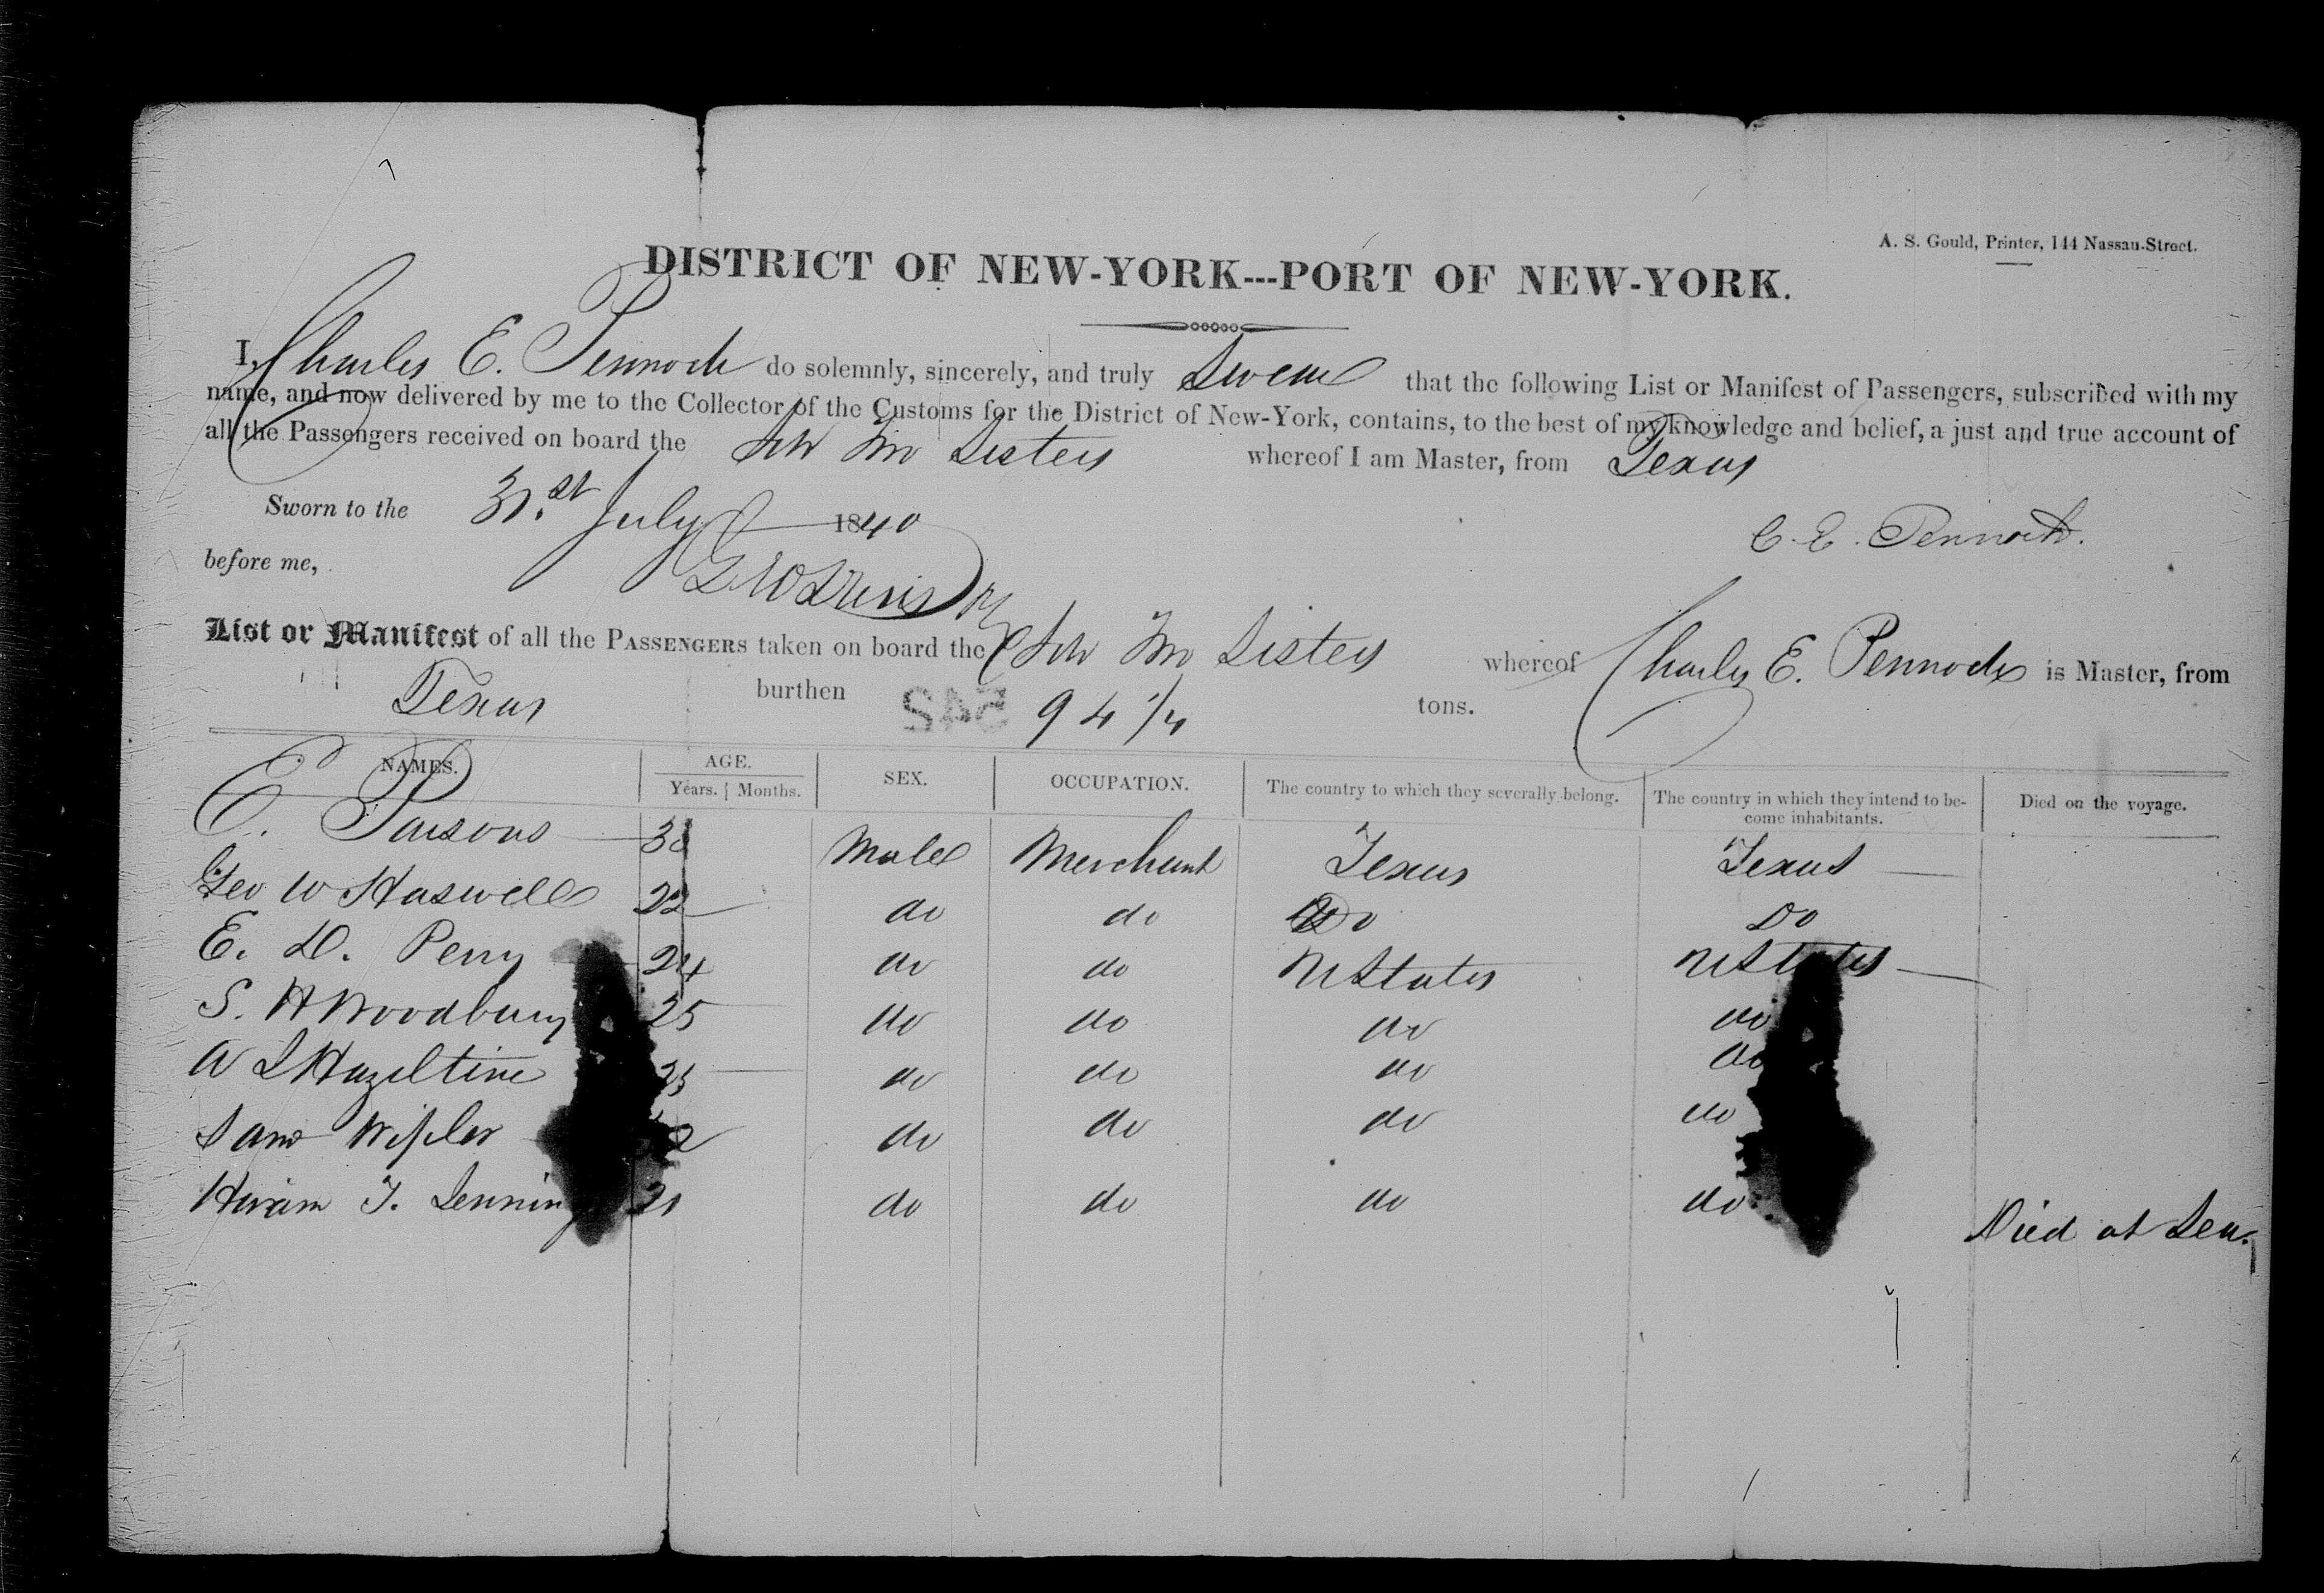 A. S. Gould, Printer, 144 Nassau-Street.
DISTRICT OF NEW-YORK---PORT OF NEW-YORK.
I, Charles E. Pennock do solemnly, sincerely, and truly Swear that the following List or Manifest of Passengers, subscribed with my
name, and now delivered by me to the Collector of the Customs for the District of New-York, contains, to the best of my knowledge and belief, a just and true account of
all the Passengers received on board the Sch Two Sisters whereof I am Master, from Texas
Sworn to the 31.st July 1840
C. E. Pennock.
before me,
List or Manifest of all the PASSENGERS taken on board the Sch Two Sisters whereof Charles E. Pennock is Master, from
Texas burthen 542 94 1/4 tons.
NAMES. AGE. SEX. OCCUPATION. The country to which they severally belong. The country in which they intend to be-
come inhabitants. Died on the voyage.
Years. Months.
E. Parsons 30 Male Merchant Texas Texas
Geo W Haswell 22 do do Do Do
E. D. Perry 24 do do UStates UStates
S. H Woodbury 25 do do do do
A S Hazeltine 25 do do do do
Sam 2 do do do do
Hiram T. 21 do do do do Died at Sea.